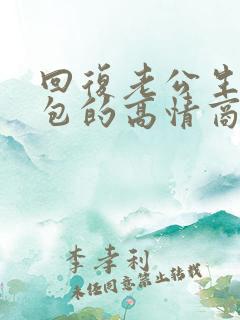 回復老公生
包的高情商
李幸利
未经同意禁止转载